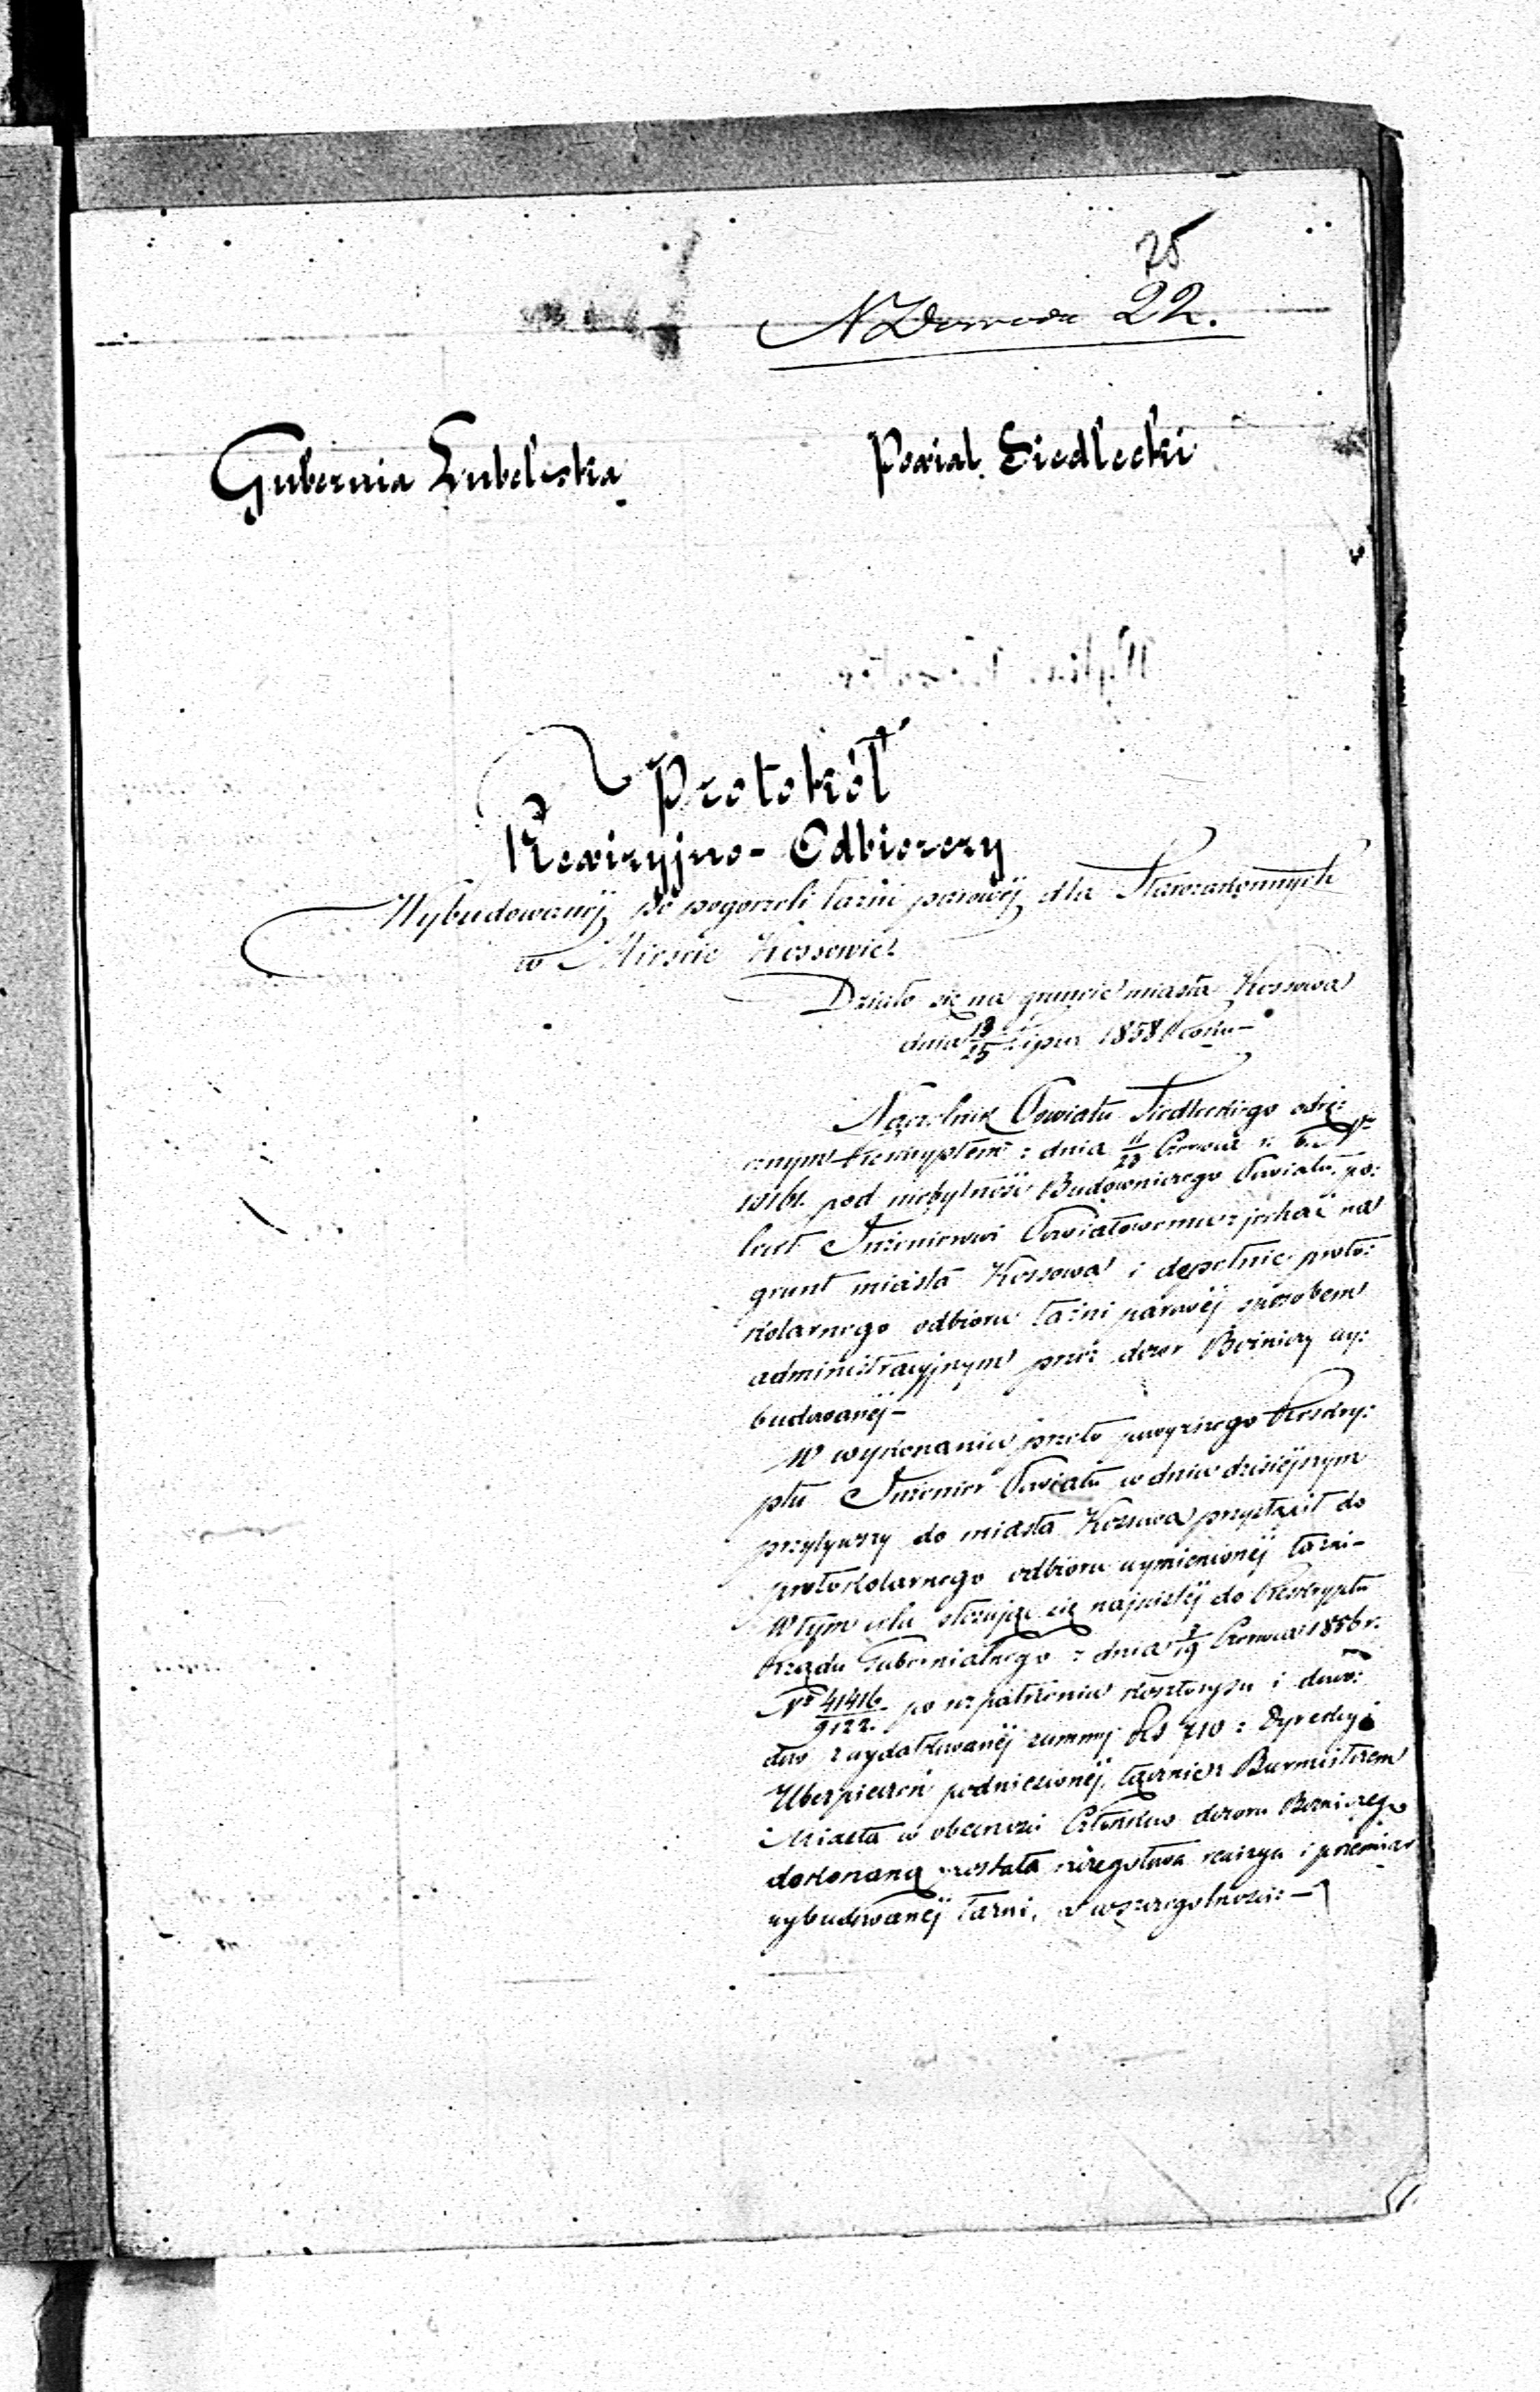 25
N Dowodu 22.
Gubernia Lubelska
Powiat Siedlecki
Protokół
Rewizyjno-Odbiorczy
Wybudowanéj po pogorzeli łaźni parowéj dla Starozakonnych
w Mieście Kossowie
Działo się na gruncie miasta Kossowa
dnia 13/25 Lipca 1858 Roku-
Naczelnik Powiatu Siedleckiego odrę:
cznym Reskryptem z dnia 11/23 Czerwca r. b. Nr
19161. pod niebytność Budowniczego Powiatu, po:
lecił Inżenierowi Powiatowemu zjechać na
grunt miasta Kossowa i dopełnić proto:
kolarnego odbioru łaźni parowéj sposobem
administracyjnym przez dozór Bóżniczy wy:
budowanéj-
W wykonaniu przeto powyższego Reskry:
ptu Inżenier Powiatu w dniu dzisiéjszym
przybywszy do miasta Kossowa przystąpił do
protokolarnego odbioru wymienionéj łaźni-
W tym celu stosując się najściśléj do Reskryptu
Rządu Gubernialnego z dnia 7/19 Czerwca 1856 r.
Nº 41416/9122. po rozpatrzeniu kosztorysu i dowo:
dów z wydatkowanéj summy Rs 710 z Dyrekcyi
Ubezpieczeń podniesionéj, łącznie z Burmistrzem
Miasta w obecności Członków dozoru Bóżniczego
dokonaną została szczegółowa rewizya i przemiar
wybudowanéj łaźni, a w szczególności:-